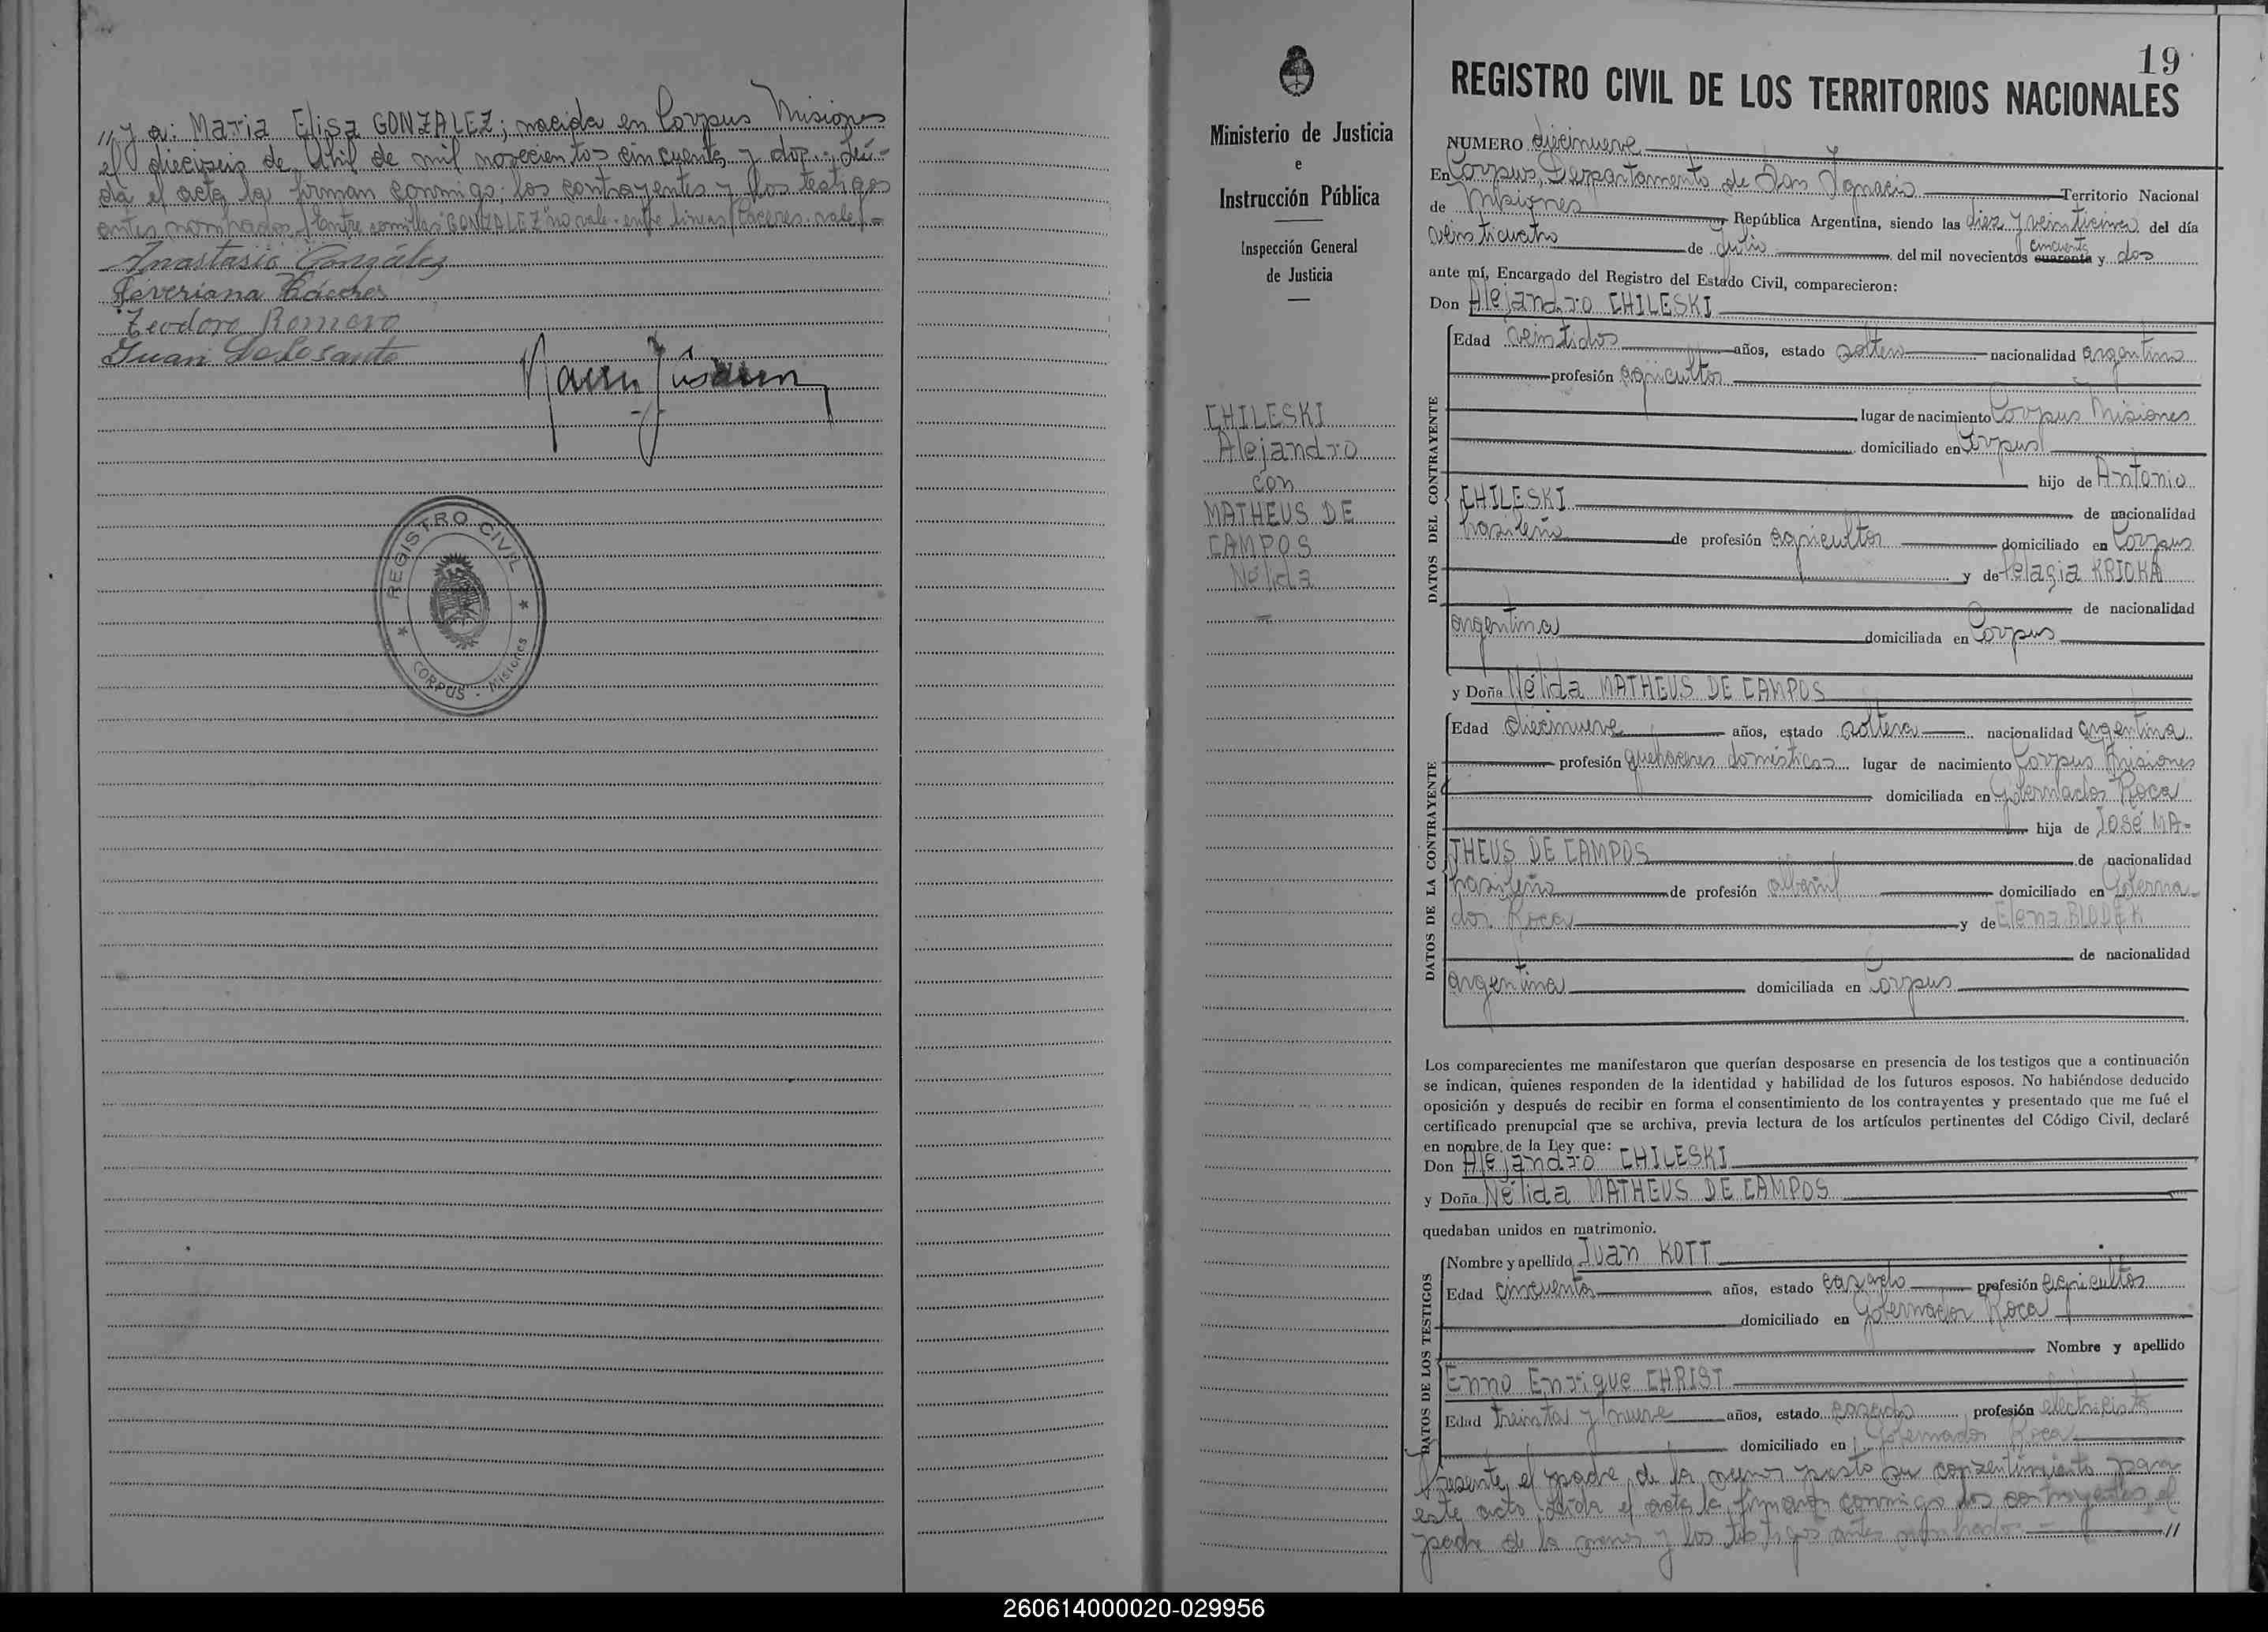 // y a: Maria Elisa GONZALEZ; nacida en Corpus Misiones
el dieciseis de Abril de mil novecientos cincuenta y dos.- Leí-
da el acta, la firman conmigo, los contrayentes y los testigos
antes nombrados./ Entre comillas "GONZALEZ" no vale - entre lineas/Cáceres. vale/-=
Anastasio González
Severiana Cáceres
Teodoro Romero
Juan
REGISTRO CIVIL
CORPUS - Misiones
Ministerio de Justicia
e
Instrucción Pública
Inspección General
de Justicia
CHILESKI
Alejandro
con
MATHEUS DE
CAMPOS
Nélida
19
REGISTRO CIVIL DE LOS TERRITORIOS NACIONALES
NUMERO diecinueve
En Corpus, Departamento de San Ignacio Territorio Nacional
de Misiones República Argentina, siendo las diez y veinticinco del día
veinticuatro de Julio del mil novecientos cuarenta cincuenta y dos
ante mí, Encargado del Registro del Estado Civil, comparecieron:
Don Alejandro CHILESKI
DATOS DEL CONTRAYENTE
Edad veintidos años, estado soltero nacionalidad argentino
profesión agricultor
lugar de nacimiento Corpus Misiones
domiciliado en Corpus
hijo de Antonio
CHILESKI de nacionalidad
brasileño de profesión agricultor domiciliado en Corpus
y de Pelagia KRIOKA
de nacionalidad
argentina domiciliada en Corpus
y Doña Nélida MATHEUS DE CAMPOS
DATOS DE LA CONTRAYENTE
Edad diecinueve años, estado soltera nacionalidad argentina
profesión quehaceres domésticos lugar de nacimiento Corpus Misiones
domiciliada en Gobernador Roca
hija de José MA-
THEUS DE CAMPOS de nacionalidad
brasileño de profesión albañil domiciliado en Goberna-
dor Roca y de Elena BLODEK
de nacionalidad
argentina domiciliada en Corpus
Los comparecientes me manifestaron que querían desposarse en presencia de los testigos que a continuación
se indican, quienes responden de la identidad y habilidad de los futuros esposos. No habiéndose deducido
oposición y después de recibir en forma el consentimiento de los contrayentes y presentado que me fué el
certificado prenupcial que se archiva, previa lectura de los artículos pertinentes del Código Civil, declaré
en nombre de la Ley que:
Don Alejandro CHILESKI
y Doña Nélida MATHEUS DE CAMPOS
quedaban unidos en matrimonio.
DATOS DE LOS TESTIGOS
Nombre y apellido Juan KOTT
Edad cincuenta años, estado casado profesión agricultor
domiciliado en Gobernador Roca
Nombre y apellido
Enno Enrique CHRIST
Edad treinta y nueve años, estado casado profesión electricista
domiciliado en Gobernador Roca
Presente el padre de la menor presto su consentimiento para
este acto, leida el acta la firmaron conmigo los contrayentes, el
padre de la menor y los testigos antes nombrados //
260614000020-029956